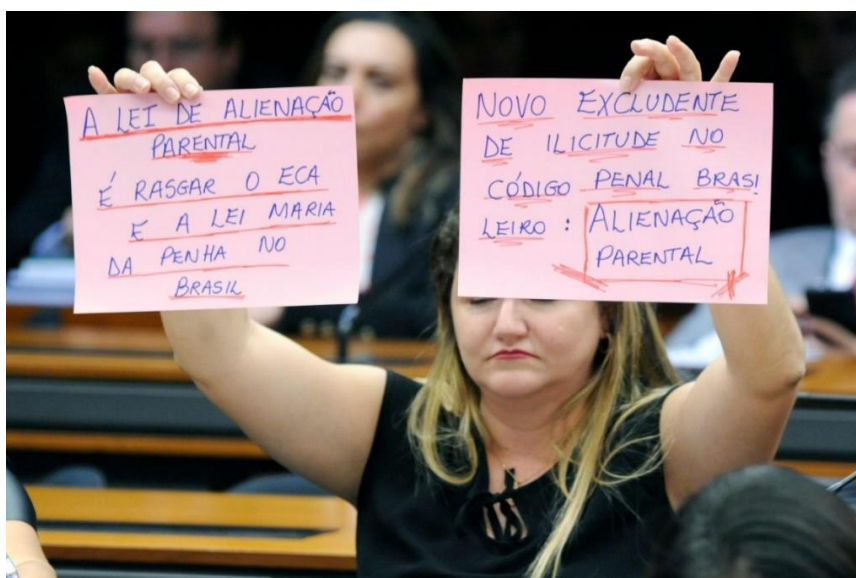 A LEI DE ALIENAÇÃO
PARENTAL
É RASGAR O ECA
E A LEI MARIA
DA PENHA NO
BRASIL
NOVO EXCLUDENTE
DE ILICITUDE NO
CÓDIGO PENAL BRASI
LEIRO : ALIENAÇÃO
PARENTAL